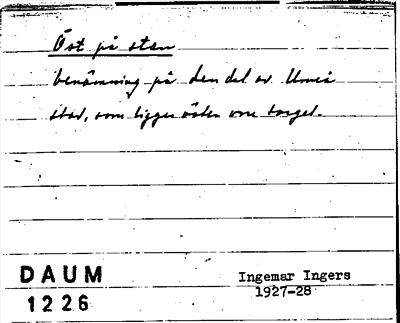 Öst på stan
benämning på den del av Umeå
stad, som ligger öster om torget.
DAUM
1226
Ingemar Ingers
1927-28